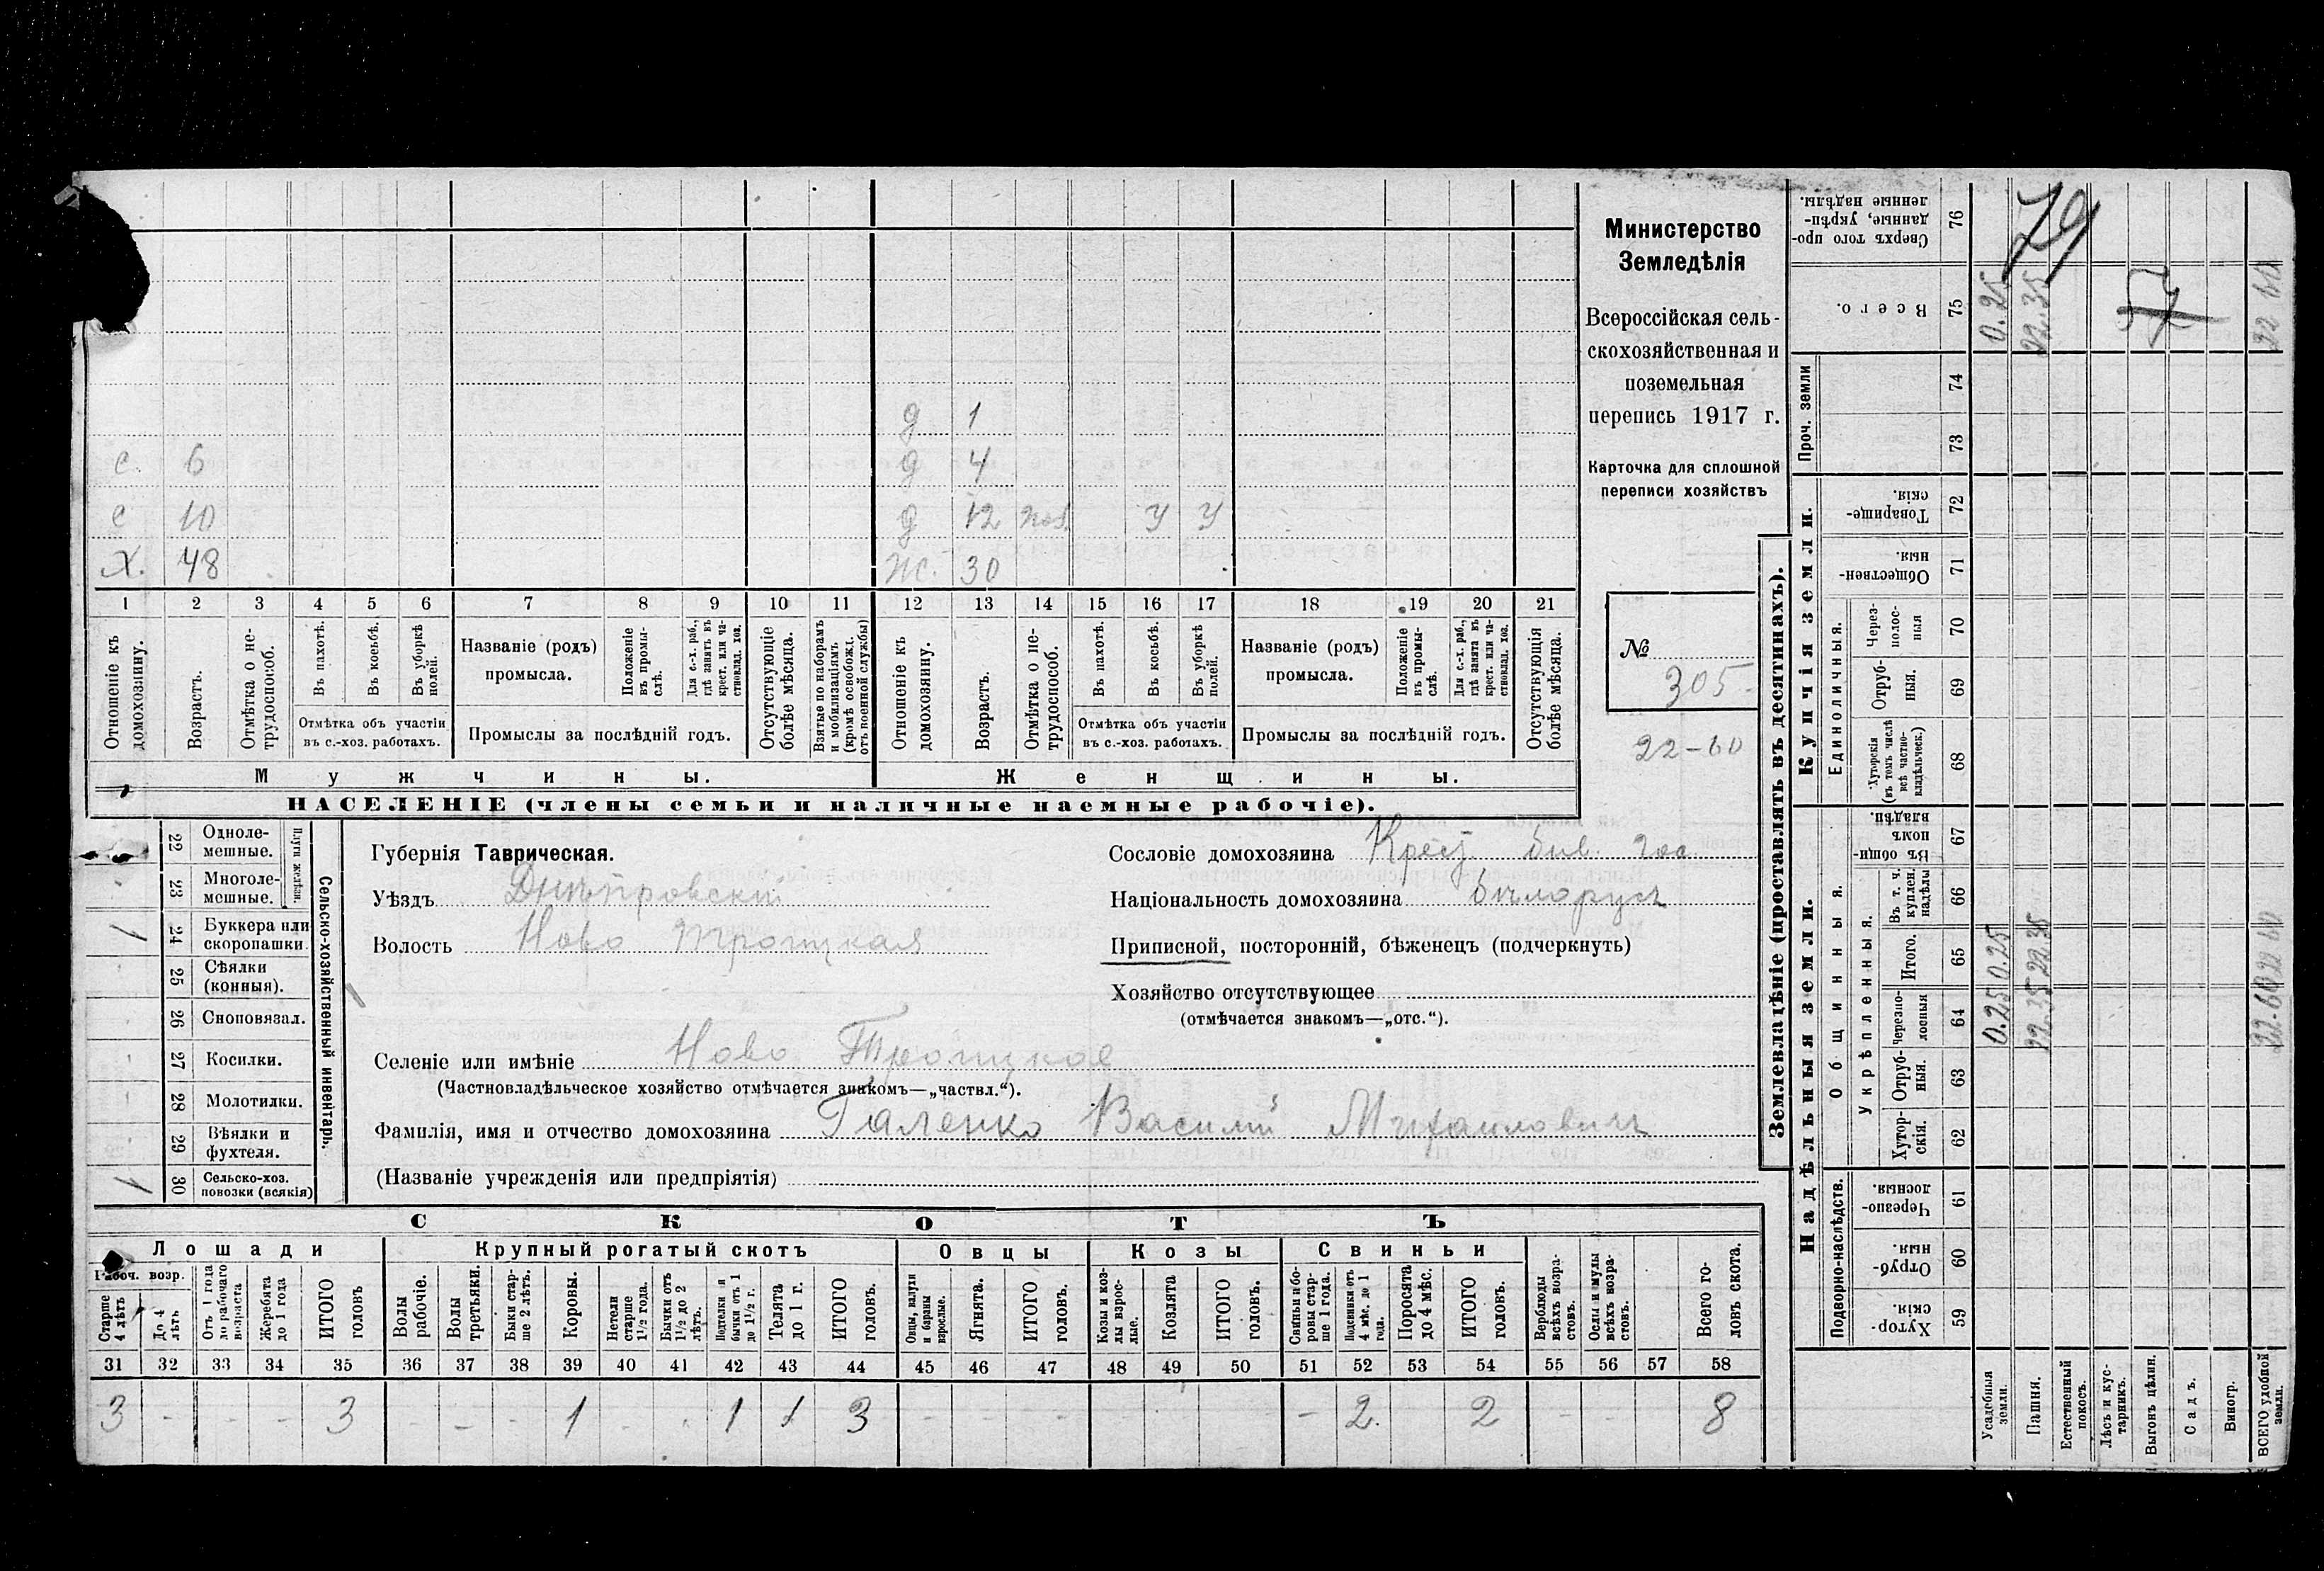 Министерство
Земледѣлія
Всероссійская сель-
скохозяйственная и
поземельная
перепись 1917 г.
Карточка для сплошной
переписи хозяйствъ
№
305
22-60
д 1
с. 6 д 4
с 10 д 12 У У
Х. 48 ж. 30
1 2 3 4 5 6 7 8 9 10 11 12 13 14 15 16 17 18 19 20 21
Отношеніе къ домохозяину.
Возрастъ.
Отмѣтка о не-трудоспособ.
Въ пахотѣ.
Въ косьбѣ.
Въ уборкѣ полей.
Отмѣтка объ участіи
въ с.-хоз. работахъ.
Названіе (родъ)
промысла.
Положеніе въ промы-слѣ.
Для с.-х. раб., гдѣ занятъ въ крест. или ча-стновлад. хоз.
Промыслы за послѣдній годъ.
Отсутствующіе болѣе мѣсяца.
Взятые по наборамъ и мобилизаціямъ (кромѣ освобожд. отъ военной службы)
Отношеніе къ домохозяину.
Возрастъ.
Отмѣтка о не-трудоспособ.
Въ пахотѣ.
Въ косьбѣ.
Въ уборкѣ полей.
Отмѣтка объ участіи
въ с.-хоз. работахъ.
Названіе (родъ)
промысла.
Положеніе въ промы-слѣ.
Для с.-х. раб., гдѣ занята въ крест. или ча-стновлад. хоз.
Промыслы за послѣдній годъ.
Отсутствующія болѣе мѣсяца.
Мужчины. Женщины.
НАСЕЛЕНІЕ (члены семьи и наличные наемные рабочіе).
Сельско-хозяйственный инвентарь.
Плуги желѣзн.
22 Одноле-мешные.
23 Многоле-мешные.
1 24 Буккера или скоропашки.
25 Сѣялки (конныя).
26 Сноповязал.
27 Косилки.
28 Молотилки.
29 Вѣялки и фухтеля.
1 30 Сельско-хоз. повозки (всякія)
Губернія Таврическая.
Уѣздъ Днѣпровскій
Волость Ново Троицкая
Сословіе домохозяина Крест. быв. гос
Національность домохозяина бѣлорусъ
Приписной, посторонній, бѣженецъ (подчеркнуть)
Хозяйство отсутствующее
(отмѣчается знакомъ—„отс.“).
Селеніе или имѣніе Ново Троицкое
(Частновладѣльческое хозяйство отмѣчается знакомъ—„частвл.“).
Фамилія, имя и отчество домохозяина Галенко Василій Михаиловичъ
(Названіе учрежденія или предпріятія)
СКОТЪ
Лошади Крупный рогатый скотъ Овцы Козы Свиньи
Рабоч. возр.
Старше 4 лѣтъ
До 4 лѣтъ
Отъ 1 года до рабочаго возраста
Жеребята до 1 года
ИТОГО головъ
Волы рабочіе.
Волы третьяки.
Быки стар-ше 2 лѣтъ.
Коровы.
Нетели старше 1½ года.
Бычки отъ 1½ до 2 лѣтъ.
Подтелки и бычки отъ 1 до 1½ г.
Телята до 1 г.
ИТОГО головъ.
Овцы, валухи и бараны взрослые.
Ягнята.
ИТОГО головъ.
Козы и коз-лы взрос-лые.
Козлята
ИТОГО головъ.
Свиньи и бо-ровы стар-ше 1 года.
Подсвинки отъ 4 мѣс. до 1 года.
Поросята до 4 мѣс.
ИТОГО головъ.
Верблюды всѣхъ возра-стовъ.
Ослы и мулы всѣхъ возра-стовъ.
Всего го-ловъ скота.
31 32 33 34 35 36 37 38 39 40 41 42 43 44 45 46 47 48 49 50 51 52 53 54 55 56 57 58
3 - - - 3 - - - 1 - - 1 1 3 - - - - - 2 2 - - 8
Землевладѣніе (проставлять въ десятинахъ).
Надѣльныя земли.
Купчія земли.
Проч. земли
Подворно-наслѣдств.
Общинныя.
Укрѣпленныя.
Единоличныя.
Сверхъ того про-данные, укрѣп-ленные надѣлы. 76
Всего. 75
74
73
Товарище-скія. 72
Обществен-ныя. 71
Через-полос-ныя 70
Отруб-ныя. 69
Хуторскія (въ томъ числѣ всѣ частно-владѣльческ.) 68
Въ общин-номъ владѣн. 67
Въ т. ч. куплен. надѣлы 66
Итого. 65
Черезпо-лосныя 64
Отруб-ныя. 63
Хутор-скія. 62
Черезпо-лосныя. 61
Отруб-ныя. 60
Хутор-скія. 59
Усадебныя земли. 0.25 0.25 0.25
Пашня. 22.35 22.35 22.35
Естественный покосъ.
Лѣсъ и кус-тарникъ.
Выгонъ цѣлин.
Садъ.
Виногр.
ВСЕГО удобной земли. 22-60 22 60 22 60
79